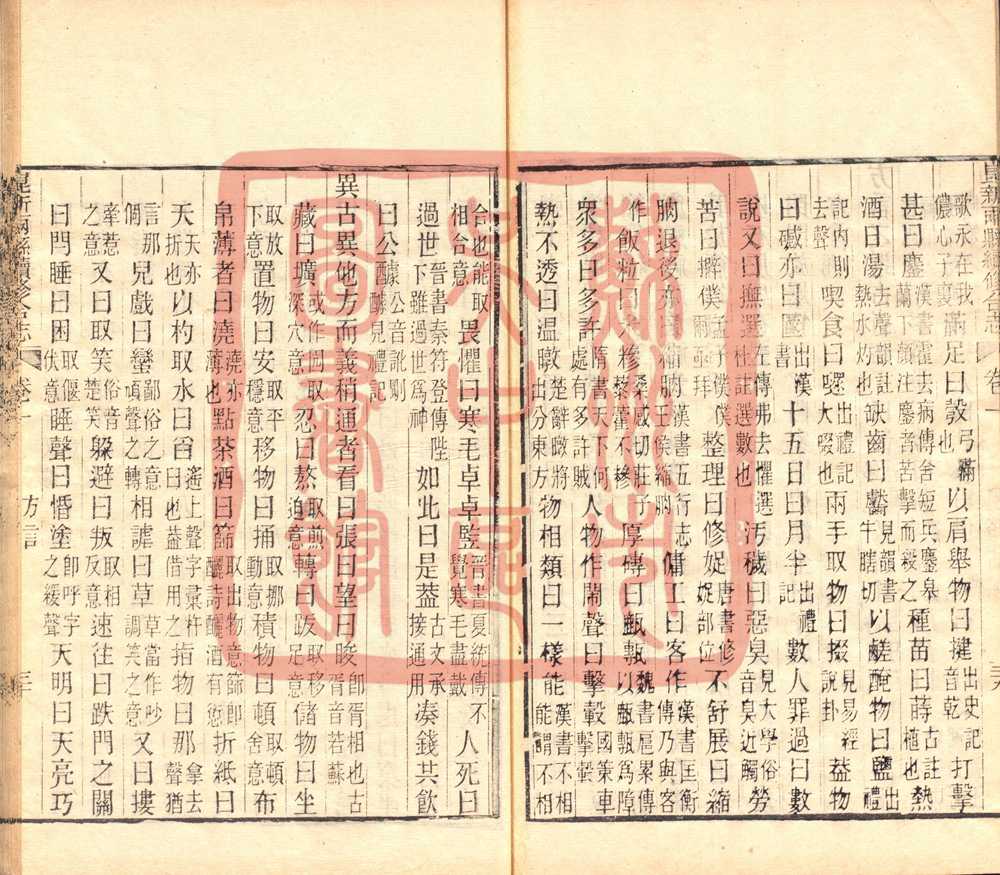 歌永在我儂心子裏滿足曰彀弓滿也以肩舉物曰揵出史記音乾打擊
甚曰鏖漢書霍去病傳舍短兵鏖皋蘭下顏注鏖音苦擊而殺之種苗曰蒔古註植也熱
酒曰湯去聲韻註熱水灼也缺齒曰齾見韻書牛瞎切以鹺醃物曰鹽出禮
記內則去聲喫食曰啜出禮記大啜也兩手取物曰掇見易經說卦葢物
曰亦曰出漢書十五日曰月半出禮記數人罪過曰數
說又曰撫選左傳弗去懼選杜註選數也汚穢曰惡臭見大學俗音臭近觸勞
苦曰擗僕孟子僕僕爾亟拜整理曰修娖唐書修娖部位不舒展曰縮
朒退後亦曰縮朒漢書五行志王侯縮朒傭工曰客作漢書匡衡傳乃與客
作飯粒曰米糝桑感切莊子藜藿不糝厚磚曰甎魏書扈累傳以甎爲障
衆多曰多許隋書天下何處有多許賊人物作鬧聲曰擊轂國策車擊轂
熱不透曰温暾楚辭暾將出分東方物相類曰一樣能漢書不相能謂不相
合也能取相合意畏懼曰寒毛卓卓監晉書夏統傳不覺寒毛盡戴人死曰
過世晉書秦符登傳陛下雖過世爲神如此曰是葢古文承接通用湊錢共飲
曰公醵公音訛劇醵見禮記
異古異他方而義稍通者看曰張曰望曰睃胥相也古胥音若蘇
藏曰壙或作囥取深穴意忍曰熬取煎迫意轉曰跋取移足意儲物曰坐
取放下意置物曰安取平穩意移物曰捅取挪動意積物曰頓取頓舍意布
帛薄者曰澆澆亦薄也點茶酒曰篩取出物意篩卽釃詩釃酒有衍折紙曰
天天亦折也以杓取水曰舀遙上聲字彙杵臼也葢借用之指物曰那拿去聲猶
言那個兒戲曰蠻鄙俗之意頑聲之轉相謔曰草草當作吵調笑之意又曰摟
牽惹之意又曰取笑俗音楚笑躱避曰叛取相反意速往曰跌門之關
曰門睡曰困取偃伏意睡聲曰惛塗卽呼字之緩聲天明曰天亮巧
昆新兩縣續修合志 卷一 方言